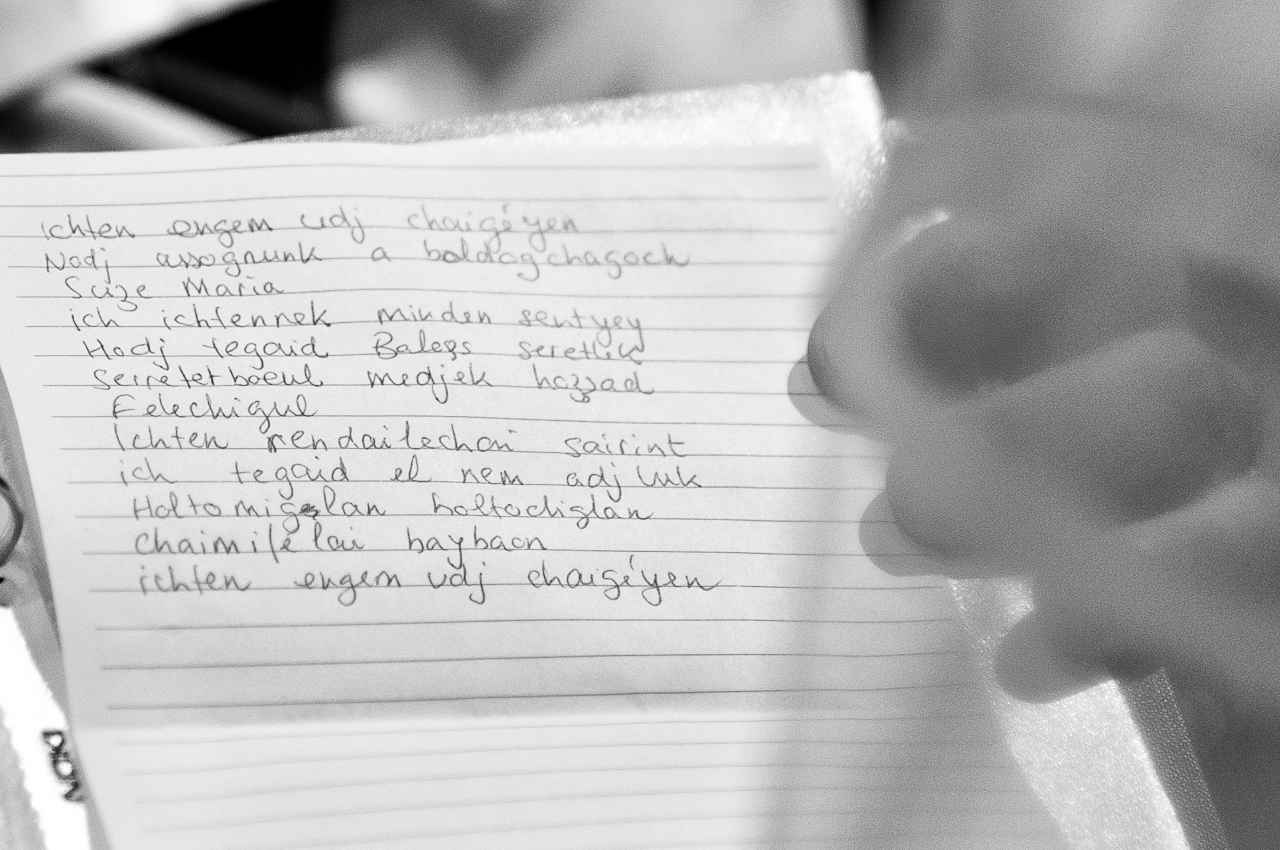 ichten engem udj chaigéyen
Nadj assognunk a boldogchagoch
Suze Maria
ich ichtennek minden sentyey
Hodj tegaid Balegs seretlik
Serretetboeul medjek hozzad
Felechigul
Ichten rendailechai sairint
ich tegaid el nem adj luk
Holtomiglan holtodiglan
chaimilé lai baybaon
ichten engem udj chaigéyen
DON